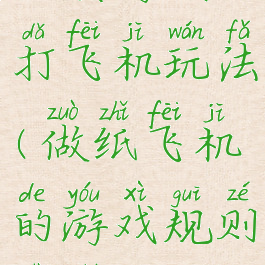 dǎ fēi jī wán fǎ
打飞机玩法
zuò zhǐ fēi jī
(做纸飞机
de yóu xì guī zé
的游戏规则